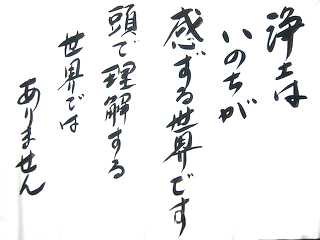 浄土は
いのちが
感ずる世界です
頭で理解する
世界では
ありません